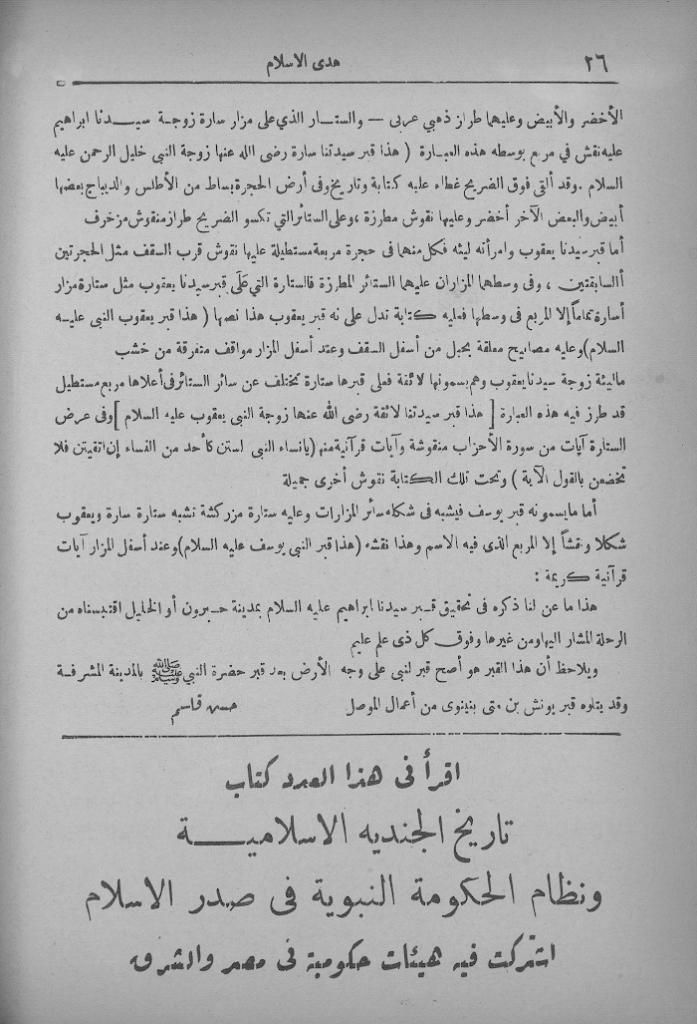 ٢٦
هدى الاسلام
الأخضر والأبيض وعليهما طراز ذهبي عربى — والستـار الذي على مزار سارة زوجـة سيـدنا ابراهيم
عليه نقش في مربع بوسطه هذه العبـارة ( هذا قبر سيدتنا سارة رضى الله عنها زوجة النبي خليل الرحمن عليه
السلام . وقد ألقى فوق الضريح غطاء عليه كتابة وتاريخ وفى أرض الحجرة بساط من الأطلس والديباج بعضها
أبيض والبعض الآخر أخضر وعليها نقوش مطرزة ، وعلى الستائر التي تكسو الضريح طراز منقوش مزخرف
أما قبر سيدنا يعقوب وامرأنه ليئه فكل منهما فى حجرة مربعة مستطيلة عليها نقوش قرب السقف مثل الحجرتين
أالسابقتين ، وفى وسطهما المزاران عليهما الستائر المطرزة فالستارة التي على قبر سيدنا يعقوب مثل ستارة مزار
أسارة تماماً إلا المربع فى وسطها فعليه كتابة تدل على نه قبر يعقوب هذا نصها ( هذا قبر يعقوب النبى عليـه
السلام) وعليه مصابيح معلقة بحبل من أسفل السقف وعند أسفل المزار مواقف متفرقة من خشب
ماليئة زوجة سيدنا يعقوب وهم يسمونها لائقة فعلى قبرها ستارة تختلف عن سائر الستائر فى أعلاها مربع مستطيل
قد طرز فيه هذه العبارة [ هذا قبر سيدتنا لائقة رضى الله عنها زوجة النبى يعقوب عليه السلام ] وفى عرض
الستارة آيات من سورة الأحزاب منقوشة وآيات قرآنية منها (يانساء النبى لستن كأحد من النساء إن اتقيتن فلا
تخضعن بالقول الآية ) وتحت تلك الكتابة نقوش أخرى جميلة
أما مايسمونه قبر يوسف فيشبه فى شكله سائر المزارات وعليه ستارة مزركشة نشبه ستارة سارة ويعقوب
شكلا ونقشاً إلا المربع الذى فيه الاسم وهذا نقشه (هذا قبر النبى يوسف عليه السلام) وعند أسفل المزار آيات
قرآنية كريمة :
هذا ما عن لنا ذكره فى تحقيق قـبر سيدنا ابراهيم عليه السلام بمدينة حـبرون أو الخليل اقتبسناه من
الرحلة المشار اليها ومن غيرها وفوق كل ذى علم عليم
ويلاحظ أن هذا القبر هو أصح قبر لنبى على وجه الأرض بعد قبر حضرة النبي ﷺ بالمدينة المشرفـة
وقد يتلوه قبر يونش بن متى بنينوى من أعمال الموصل
حسن قاسم
اقرأ فى هذا العدد كتاب
تاريخ الجنديه الاسلاميـــة
ونظام الحكومة النبوية فى صدر الاسلام
اشتركت فيه هيئات حكومية فى مصر والشرق